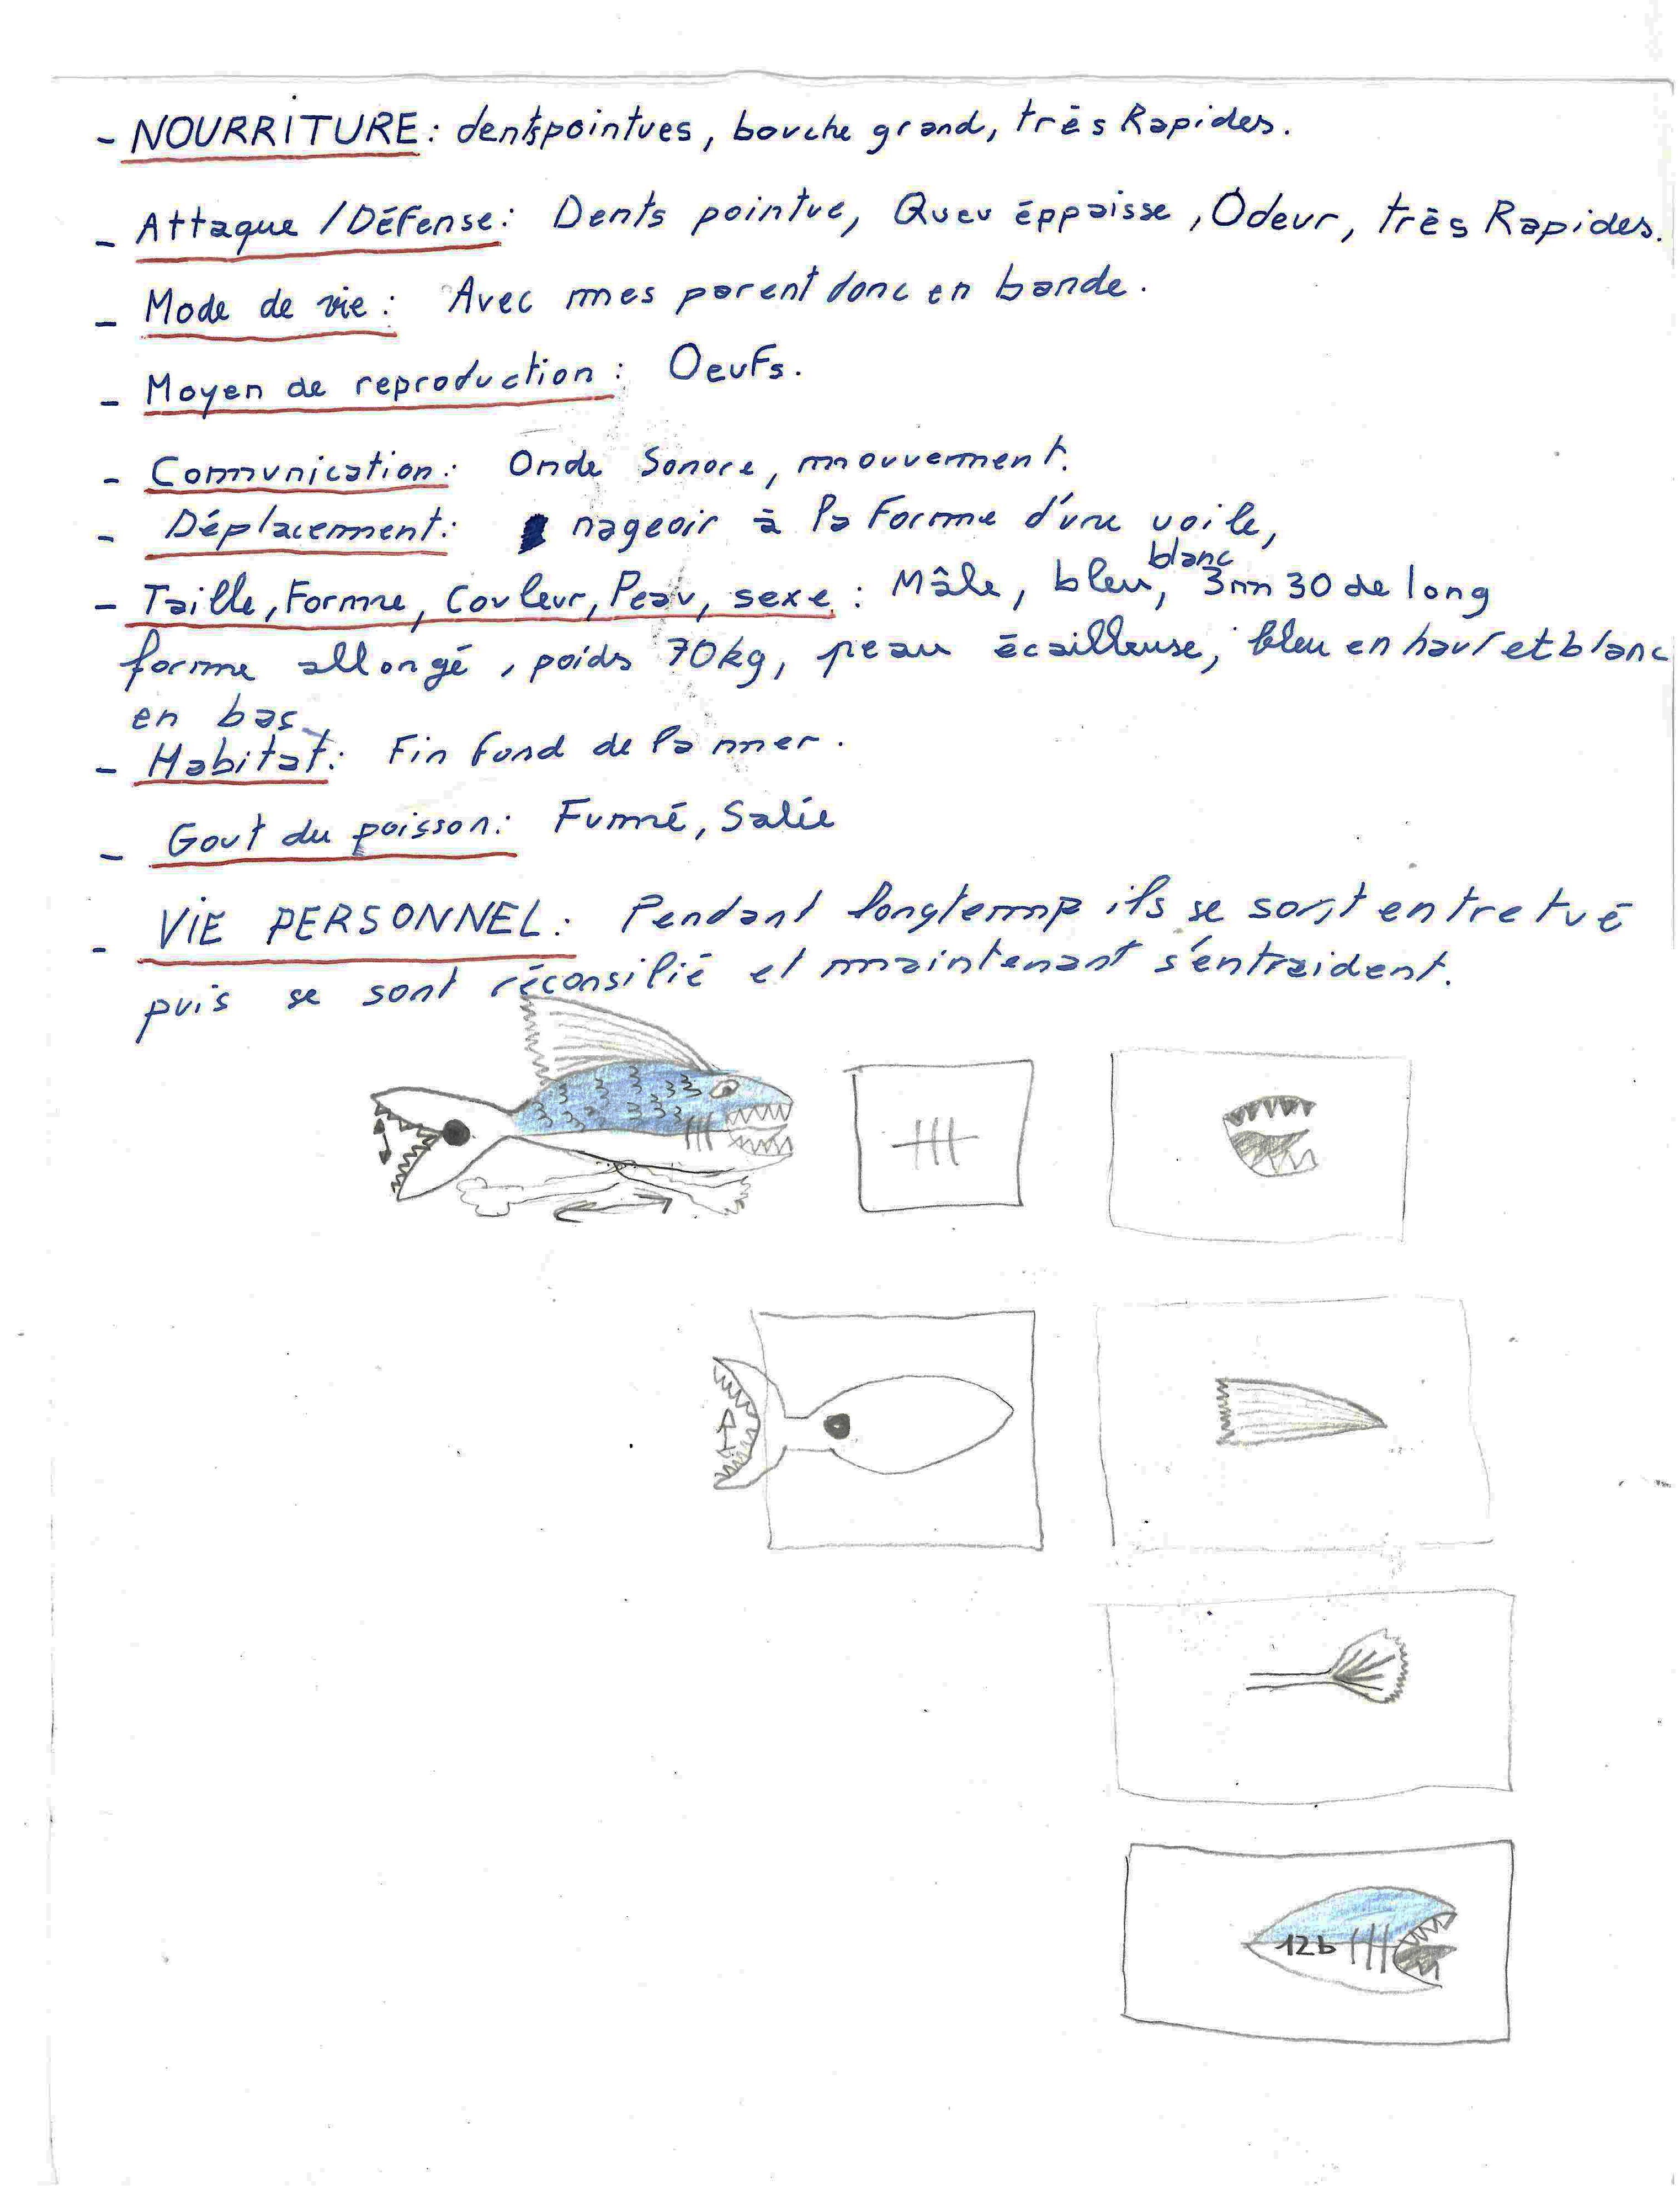 - NOURRITURE : dents pointues, bouche grand, très Rapides.
- Attaque / Défense : Dents pointue, Queu éppaisse, Odeur, très Rapides.
- Mode de vie : Avec mes parent donc en bande.
- Moyen de reproduction : Oeufs.
- Comunication : Onde Sonore, mouvement.
- Déplacement : nageoir à la Forme d'une voile,
- Taille, Forme, Couleur, Peau, sexe : Mâle, bleu, blanc 3m 30 de long
forme allongé, poids 70kg, peau écailleuse, bleu en haut et blanc
en bas
- Habitat : Fin fond de la mer.
- Gout du poisson : Fumé, Salée
- VIE PERSONNEL : Pendant longtemp ils se sont entretué
puis se sont réconsilié et maintenant s'entraident.
12b